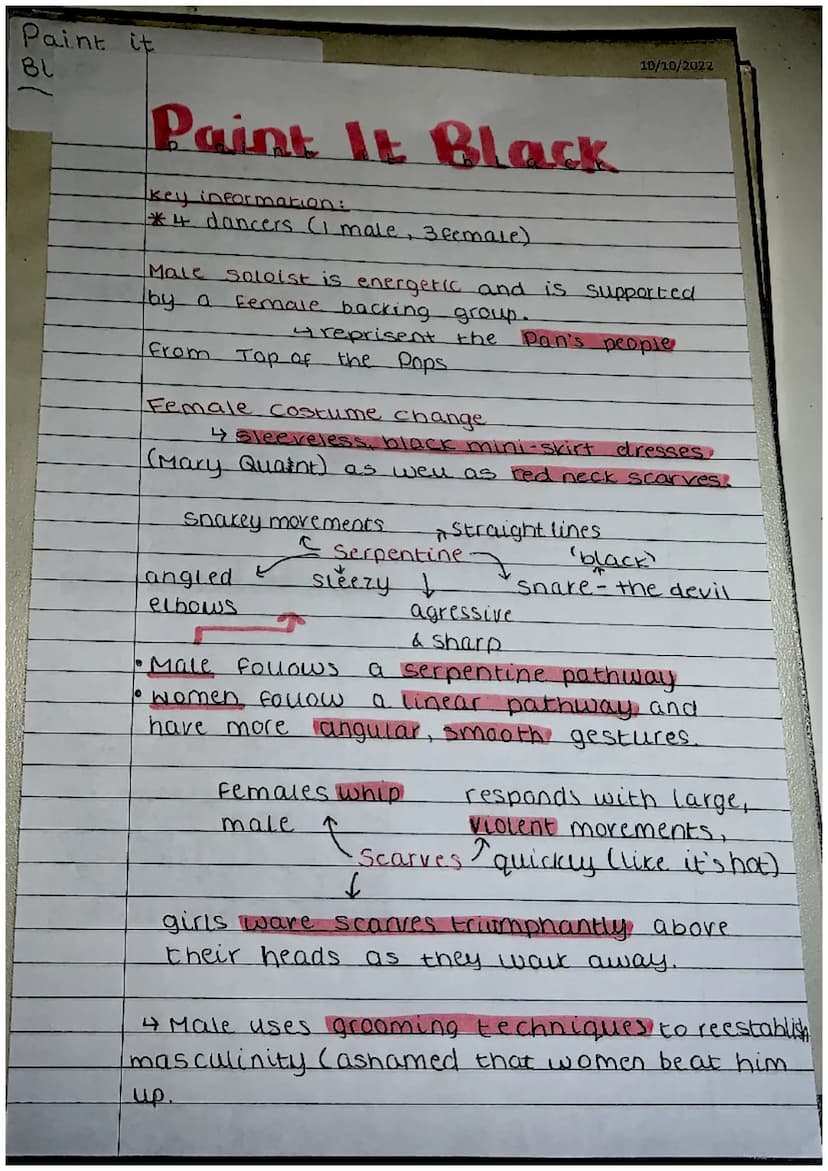 Paint it
Bl
10/10/2022
Paint It Black
Key information:
* 4 dancers (1 male, 3 female)
Male soloist is energetic and is supported
by a female backing group.
↳ reprisent the Pan's people
from Top of the Pops
Female costume change
↳ sleeveless, black mini-skirt dresses
(Mary Quaint) as well as red neck scarves.
snakey movements straight lines
serpentine 'black'
angled sleezy snake - the devil
elbows agressive
& sharp
• Male follows a serpentine pathway
• Women follow a linear pathway and
have more angular, smooth gestures.
Females whip responds with large,
male violent movements,
Scarves quickly (like it's hot)
girls wave scarves triumphantly above
their heads as they walk away.
↳ Male uses grooming techniques to reestablish
masculinity (ashamed that women beat him
up.